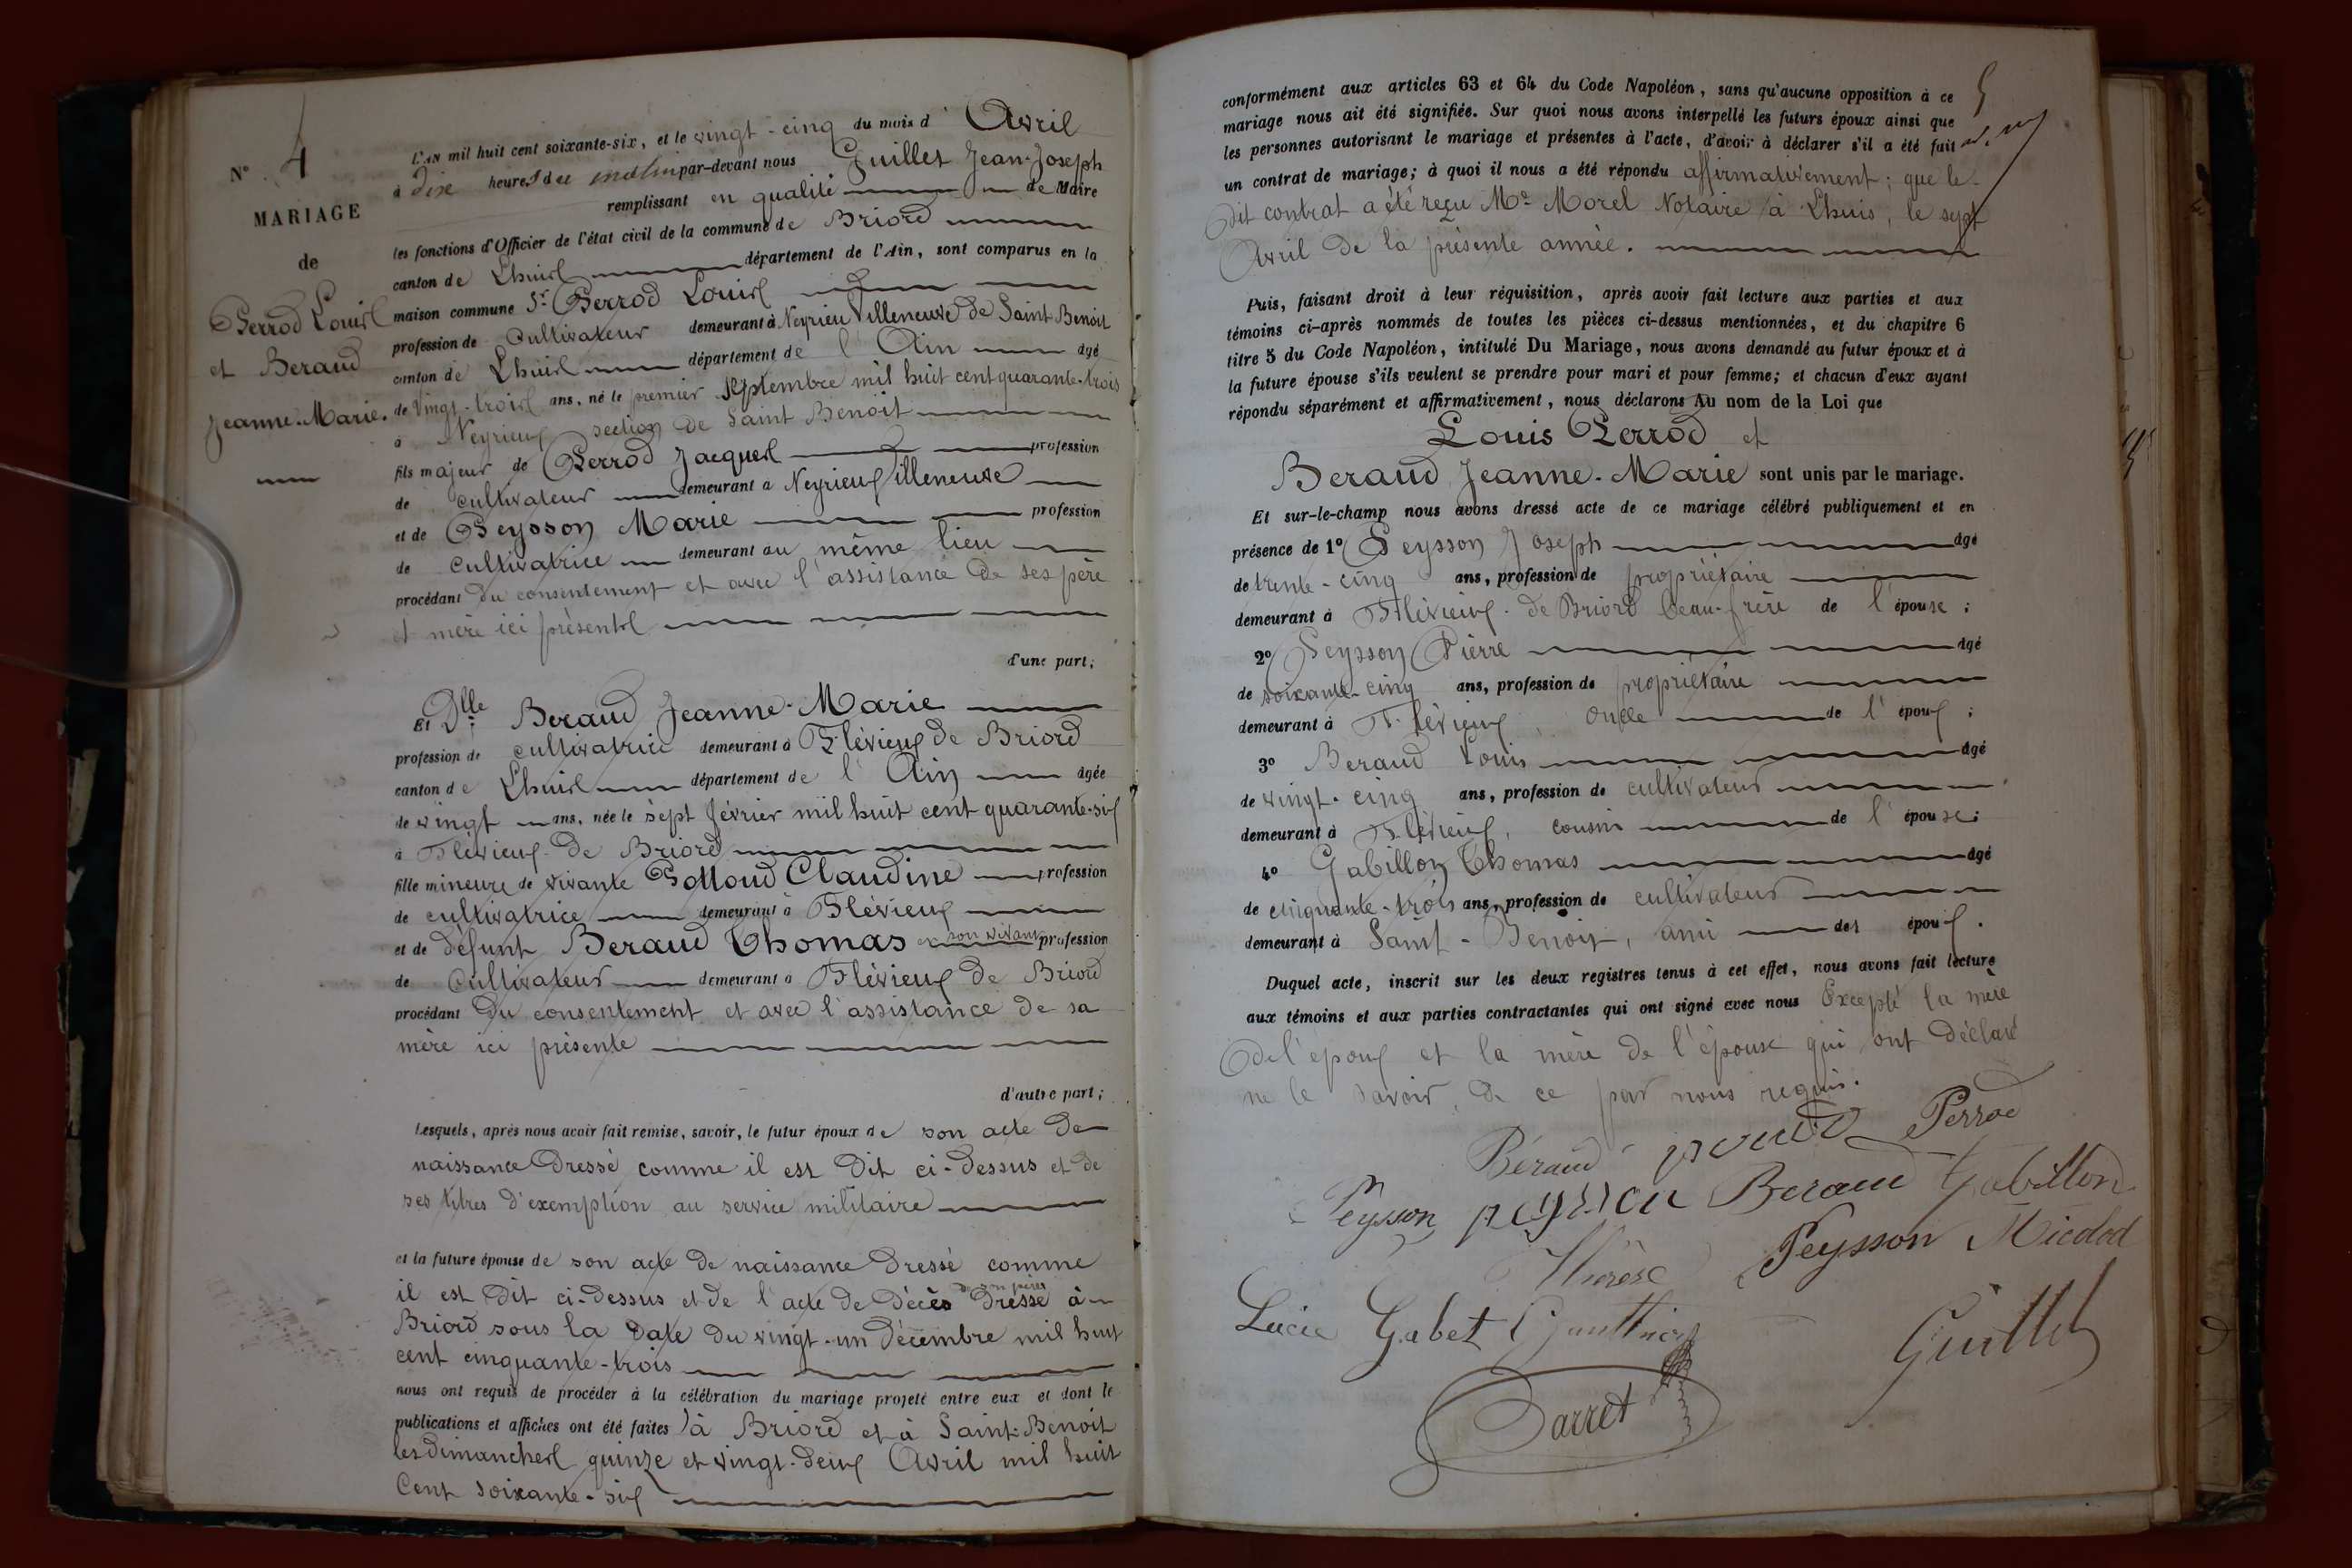 N° 4
MARIAGE
de
Perrod Louis
et Beraud
Jeanne-Marie.
L'AN mil huit cent soixante-six, et le vingt-cinq du mois d'Avril
à dix heures du matin par-devant nous Guillet Jean-Joseph
remplissant en qualité de Maire
les fonctions d'Officier de l'état civil de la commune de Briord
canton de Lhuis département de l'Ain, sont comparus en la
maison commune Sr. Perrod Louis
profession de Cultivateur demeurant à Neyrieu Villeneuve de Saint Benoit
canton de Lhuis département de l'Ain âgé
de Vingt-trois ans, né le premier Septembre mil huit cent quarante-trois
à Neyrieux section de Saint Benoit
fils majeur de Perrod Jacques profession
de cultivateur demeurant à Neyrieu Villeneuve
et de Peysson Marie profession
de cultivatrice demeurant au même lieu
procédant du consentement et avec l'assistance de ses père
et mère ici présents
d'une part;
Et Dlle Beraud Jeanne-Marie
profession de cultivatrice demeurant à Flévieux de Briord
canton de Lhuis département de l'Ain âgée
de vingt ans, née le sept février mil huit cent quarante-six
à Flévieux de Briord
fille mineure de vivante Pottoud Claudine profession
de cultivatrice demeurant à Flévieux
et de défunt Beraud Thomas en son vivant profession
de Cultivateur demeurant à Flévieux de Briord
procédant du consentement et avec l'assistance de sa
mère ici présente
d'autre part;
Lesquels, après nous avoir fait remise, savoir, le futur époux de son acte de
naissance dressé comme il est dit ci-dessus et de
ses titres d'exemption au service militaire
et la future épouse de son acte de naissance dressé comme
il est dit ci-dessus et de l'acte de décès de son père dressé à
Briord sous la date du vingt-un décembre mil huit
cent cinquante-trois
nous ont requis de procéder à la célébration du mariage projeté entre eux et dont le
publications et affiches ont été faites à Briord et à Saint-Benoit
les dimanches quinze et vingt-deux Avril mil huit
Cent soixante-six
conformément aux articles 63 et 64 du Code Napoléon, sans qu'aucune opposition à ce
mariage nous ait été signifiée. Sur quoi nous avons interpellé les futurs époux ainsi que
les personnes autorisant le mariage et présentes à l'acte, d'avoir à déclarer s'il a été fait
un contrat de mariage; à quoi il nous a été répondu affirmativement; que le
dit contrat a été reçu Me Morel Notaire à Lhuis, le sept
Avril de la présente année.
Puis, faisant droit à leur réquisition, après avoir fait lecture aux parties et aux
témoins ci-après nommés de toutes les pièces ci-dessus mentionnées, et du chapitre 6
titre 5 du Code Napoléon, intitulé Du Mariage, nous avons demandé au futur époux et à
la future épouse s'ils veulent se prendre pour mari et pour femme; et chacun d'eux ayant
répondu séparément et affirmativement, nous déclarons Au nom de la Loi que
Louis Perrod et
Beraud Jeanne-Marie sont unis par le mariage.
Et sur-le-champ nous avons dressé acte de ce mariage célébré publiquement et en
présence de 1° Peysson Joseph âgé
de trente-cinq ans, profession de propriétaire
demeurant à Flévieux de Briord beau-frère de l'épouse;
2° Peysson Pierre âgé
de soixante-cinq ans, profession de propriétaire
demeurant à Flévieux, oncle de l'époux;
3° Beraud Louis âgé
de vingt-cinq ans, profession de cultivateur
demeurant à Flévieux, cousin de l'épouse;
4° Gabillon Thomas âgé
de cinquante-trois ans, profession de cultivateur
demeurant à Saint-Benoit, ami des époux.
Duquel acte, inscrit sur les deux registres tenus à cet effet, nous avons fait lecture
aux témoins et aux parties contractantes qui ont signé avec nous Excepté la mère
de l'époux et la mère de l'épouse qui ont déclaré
ne le savoir, de ce par nous requis.
Béraud Perrod
Peysson Beraud Gabillon
Thérèse Peysson Nicolod
Lucie Gabet Gauthier
Guillet
Darret